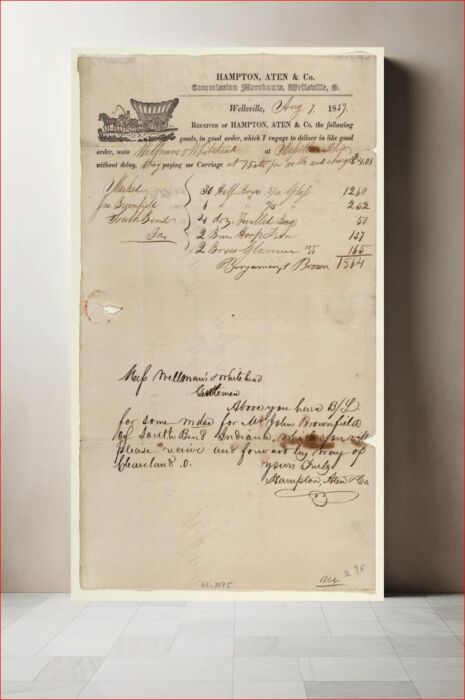 HAMPTON, ATEN & Co.
Commission Merchants, Wellsville, O.
Wellsville, Aug. 7, 1837.
RECEIVED OF HAMPTON, ATEN & Co. the following
goods, in good order, which I engage to deliver in like good
order, unto Wellmans & Whitehead at
without delay, they paying me Carriage at 75 cts per and charges $4.08
Marked
Jno Brownfield
South Bend
Ia
30 Half Boxes Glass 1260
6 " " 252
4 doz. 50
2 Hoop Iron 137
2 Boxes 165
Brown 1864
Mess Wellman's & Whitehead
Gentlemen
Above you have B/L
for some mdse for Mr John Brownfield
of South Bend Indiana, which you will
please receive and forward by way of
Cleaveland O. yours Truly
Hampton, Aten & Co